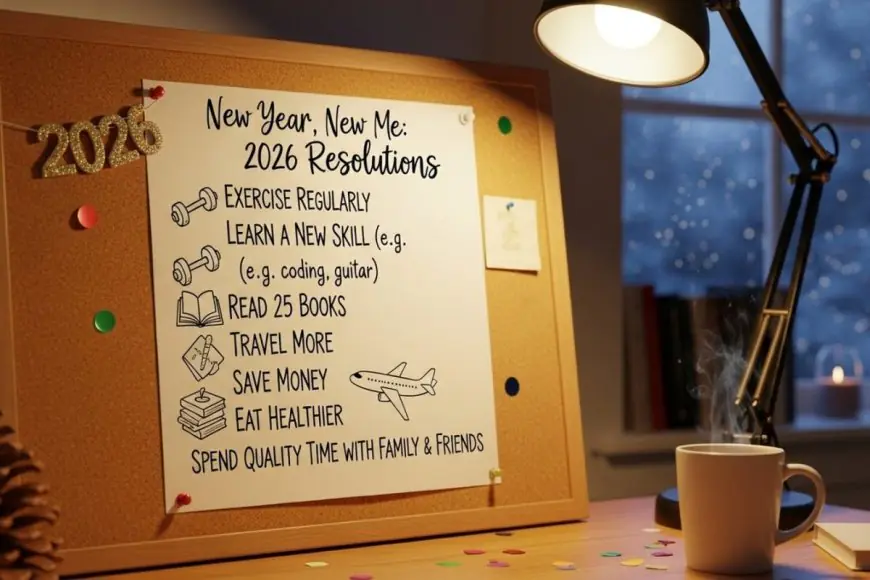 2026
New Year, New Me:
2026 Resolutions
EXERCISE REGULARLY
LEARN A NEW SKILL (e.g.
(e.g. coding, guitar)
READ 25 BOOKS
TRAVEL MORE
SAVE MONEY
EAT HEALTHIER
SPEND QUALITY TIME WITH FAMILY & FRIENDS